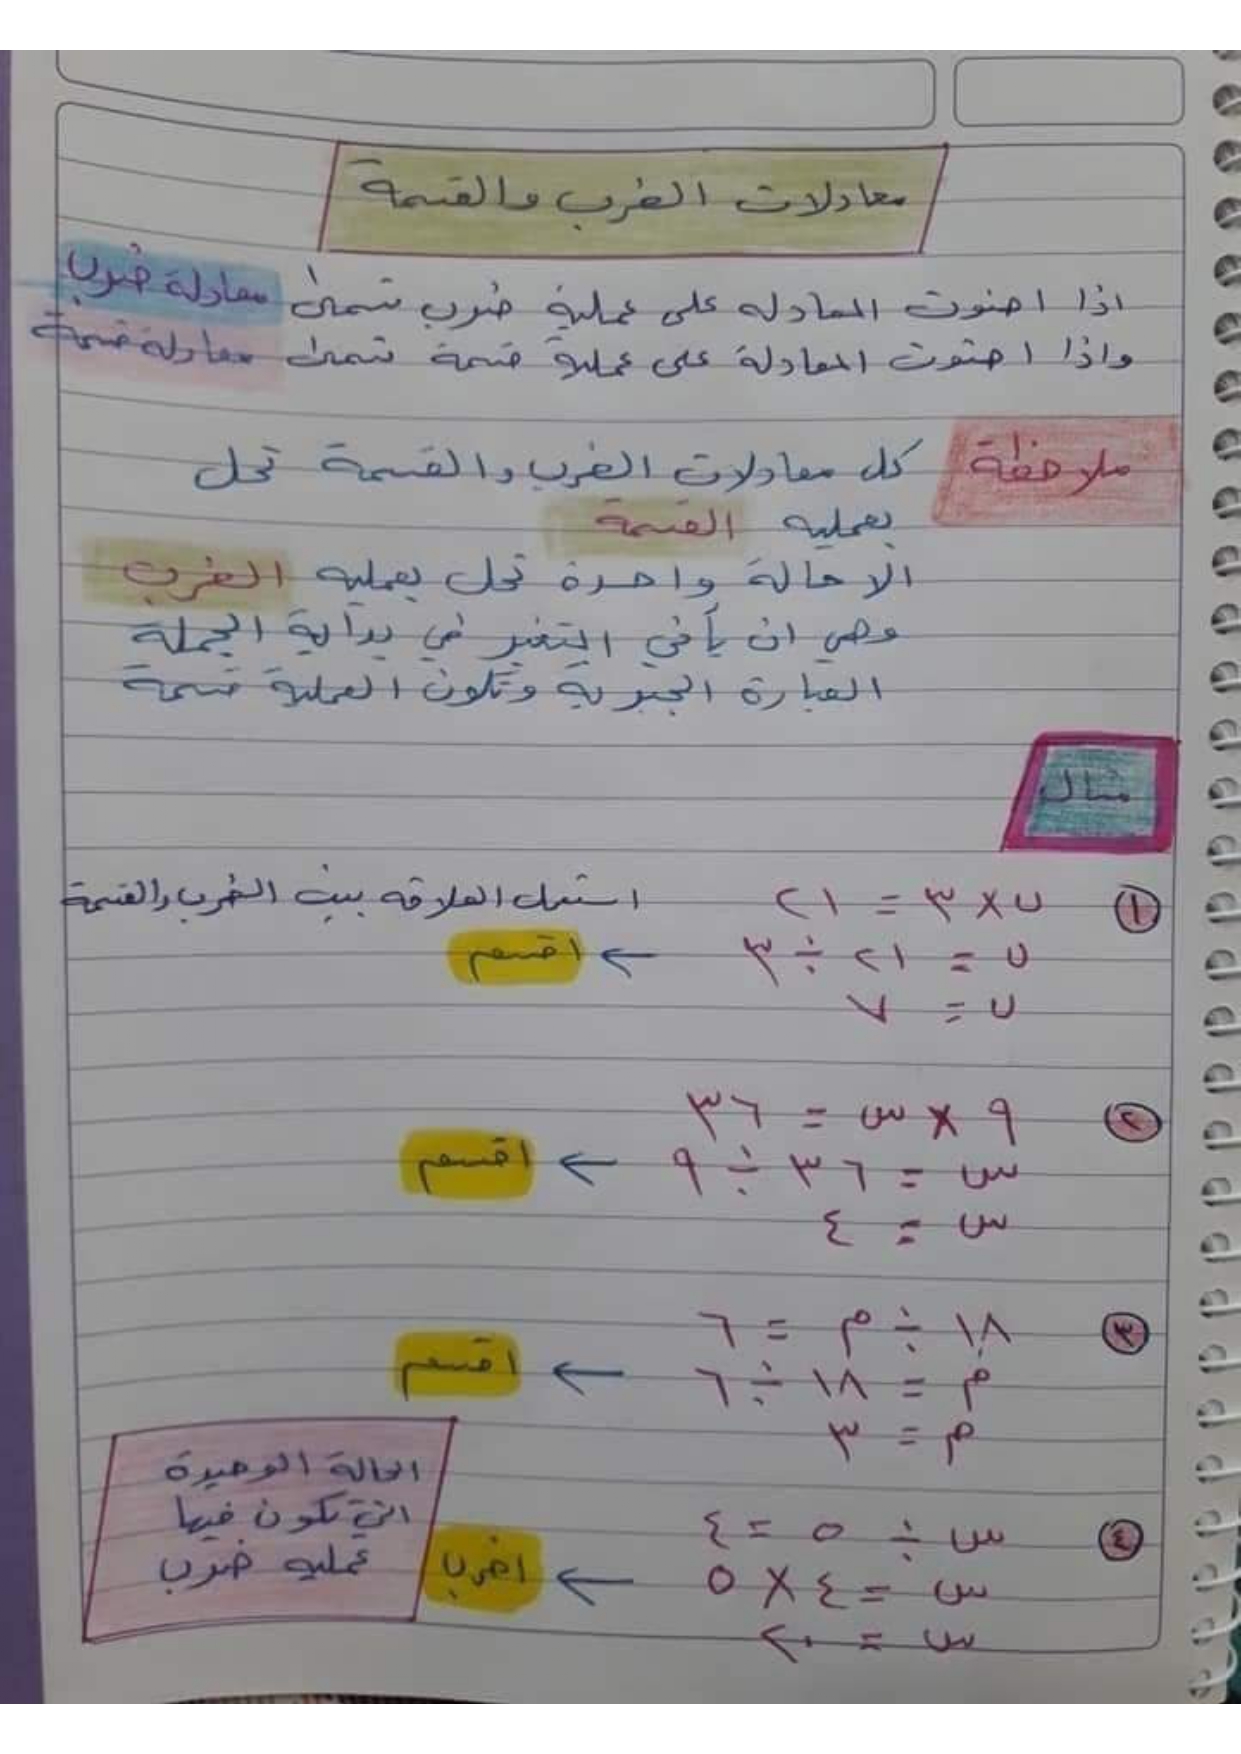 معادلات الضرب والقسمة
اذا احتوت المعادله على عملية ضرب تسمى معادلة ضرب
واذا احتوت المعادلة على عملية قسمة تسمى معادلة قسمة
ملاحظة كل معادلات الضرب والقسمة تحل
بعمليه القسمة
الا حالة واحدة تحل بعمليه الضرب
وهي ان يأتي المتغير في بداية الجملة
العبارة الجبرية وتكون العملية قسمة
مثال
١ ن × ٣ = ٢١ استعمل العلاقه بين الضرب والقسمة
ن = ٢١ ÷ ٣ ← اقسم
ن = ٧
٢ ٩ × س = ٣٦
س = ٣٦ ÷ ٩ ← اقسم
س = ٤
٣ ١٨ ÷ م = ٦
م = ١٨ ÷ ٦ ← اقسم
م = ٣
٤ س ÷ ٥ = ٤
س = ٤ × ٥ ← اضرب
س = ٢٠
الحالة الوحيدة
التي تكون فيها
عمليه ضرب